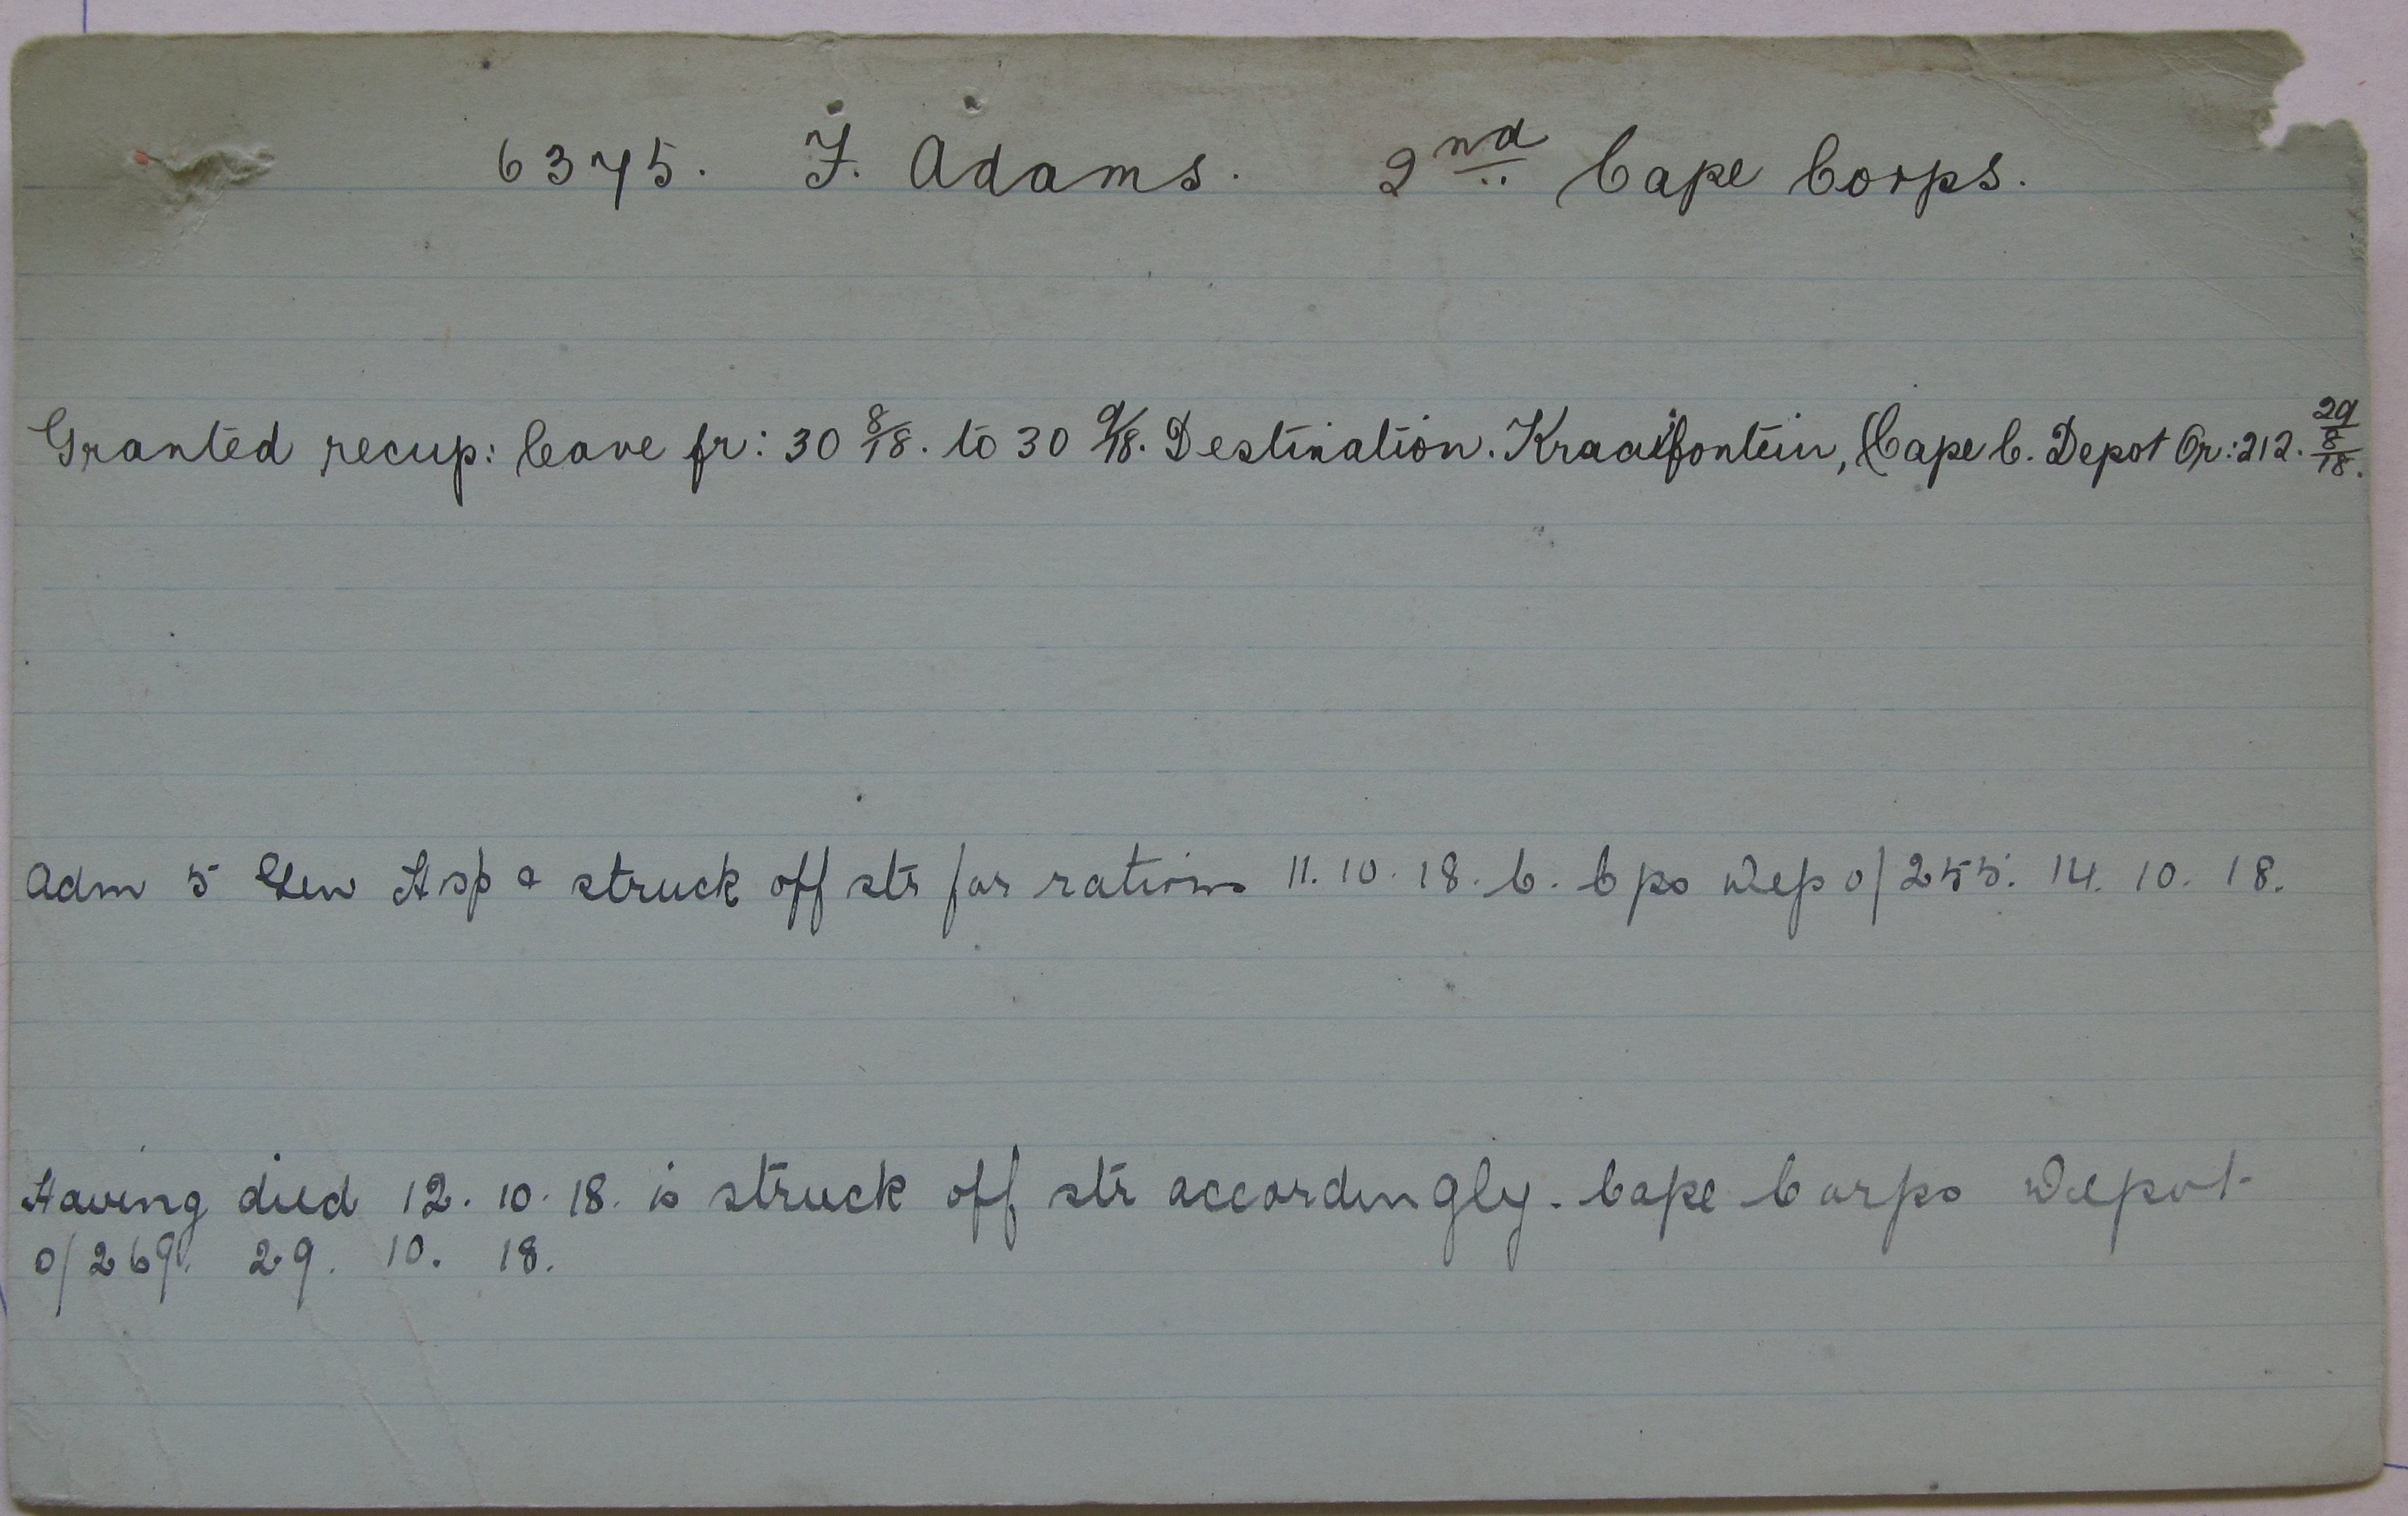 6375. F. Adams. 2nd Cape Corps.
Granted recup: leave fr: 30 8/18. to 30 9/18. Destination. Kraaifontein, Cape C. Depot Or: 212. 29/8/18.
Adm 5 Gen Hsp & struck off str for rations 11. 10. 18. C. Cps Dep o/255. 14. 10. 18.
Having died 12. 10. 18. is struck off str accordingly. Cape Corps Depot
o/269. 29. 10. 18.